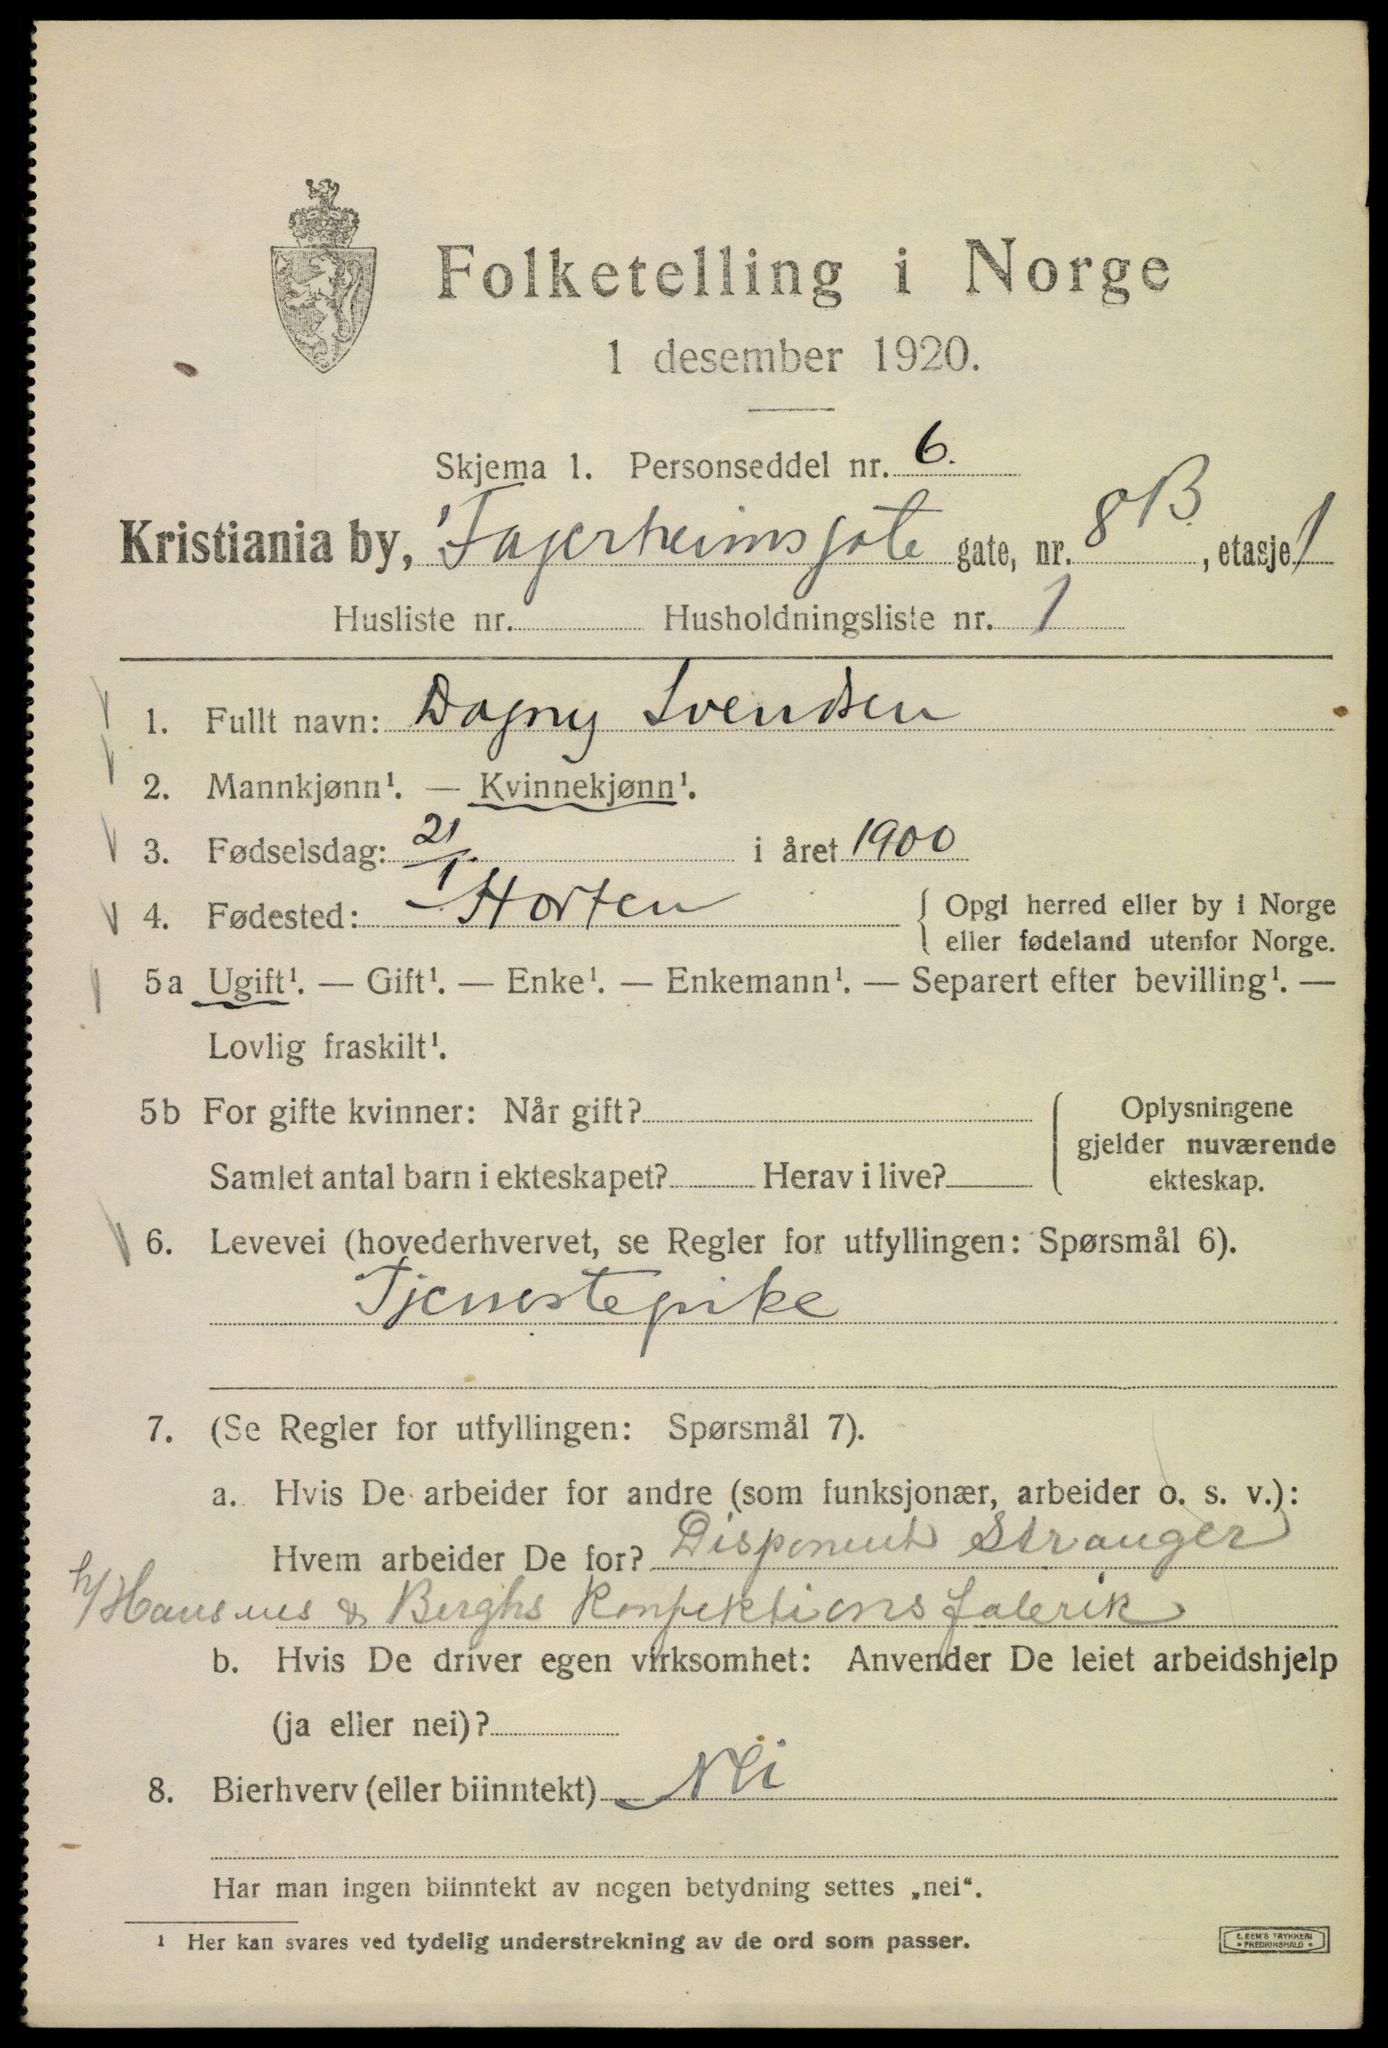 Folketelling i Norge
1 desember 1920.
Skjema 1. Personseddel nr. 6.
Kristiania by, Fagerheimsgate gate, nr. 8 B, etasje 1
Husliste nr. Husholdningsliste nr. 1
1. Fullt navn: Dagny Svendsen
2. Mannkjønn¹. — Kvinnekjønn¹.
3. Fødselsdag: 21/1. i året 1900
4. Fødested: Horten { Opgi herred eller by i Norge
eller fødeland utenfor Norge.
5a Ugift¹. — Gift¹. — Enke¹. — Enkemann¹. — Separert efter bevilling¹. —
Lovlig fraskilt¹.
5b For gifte kvinner: Når gift? Oplysningene
gjelder nuværende
Samlet antal barn i ekteskapet? Herav i live? ekteskap.
6. Levevei (hovederhvervet, se Regler for utfyllingen: Spørsmål 6).
Tjenestepike
7. (Se Regler for utfyllingen: Spørsmål 7).
a. Hvis De arbeider for andre (som funksjonær, arbeider o. s. v.):
Hvem arbeider De for? Disponent Stranger
h/ & Berghs Konfektionsfabrik
b. Hvis De driver egen virksomhet: Anvender De leiet arbeidshjelp
(ja eller nei)?
8. Bierhverv (eller biinntekt) Nei
Har man ingen biinntekt av nogen betydning settes „nei“.
¹ Her kan svares ved tydelig understrekning av de ord som passer.
E. SEM'S TRYKKERI
• FREDRIKSHALD •